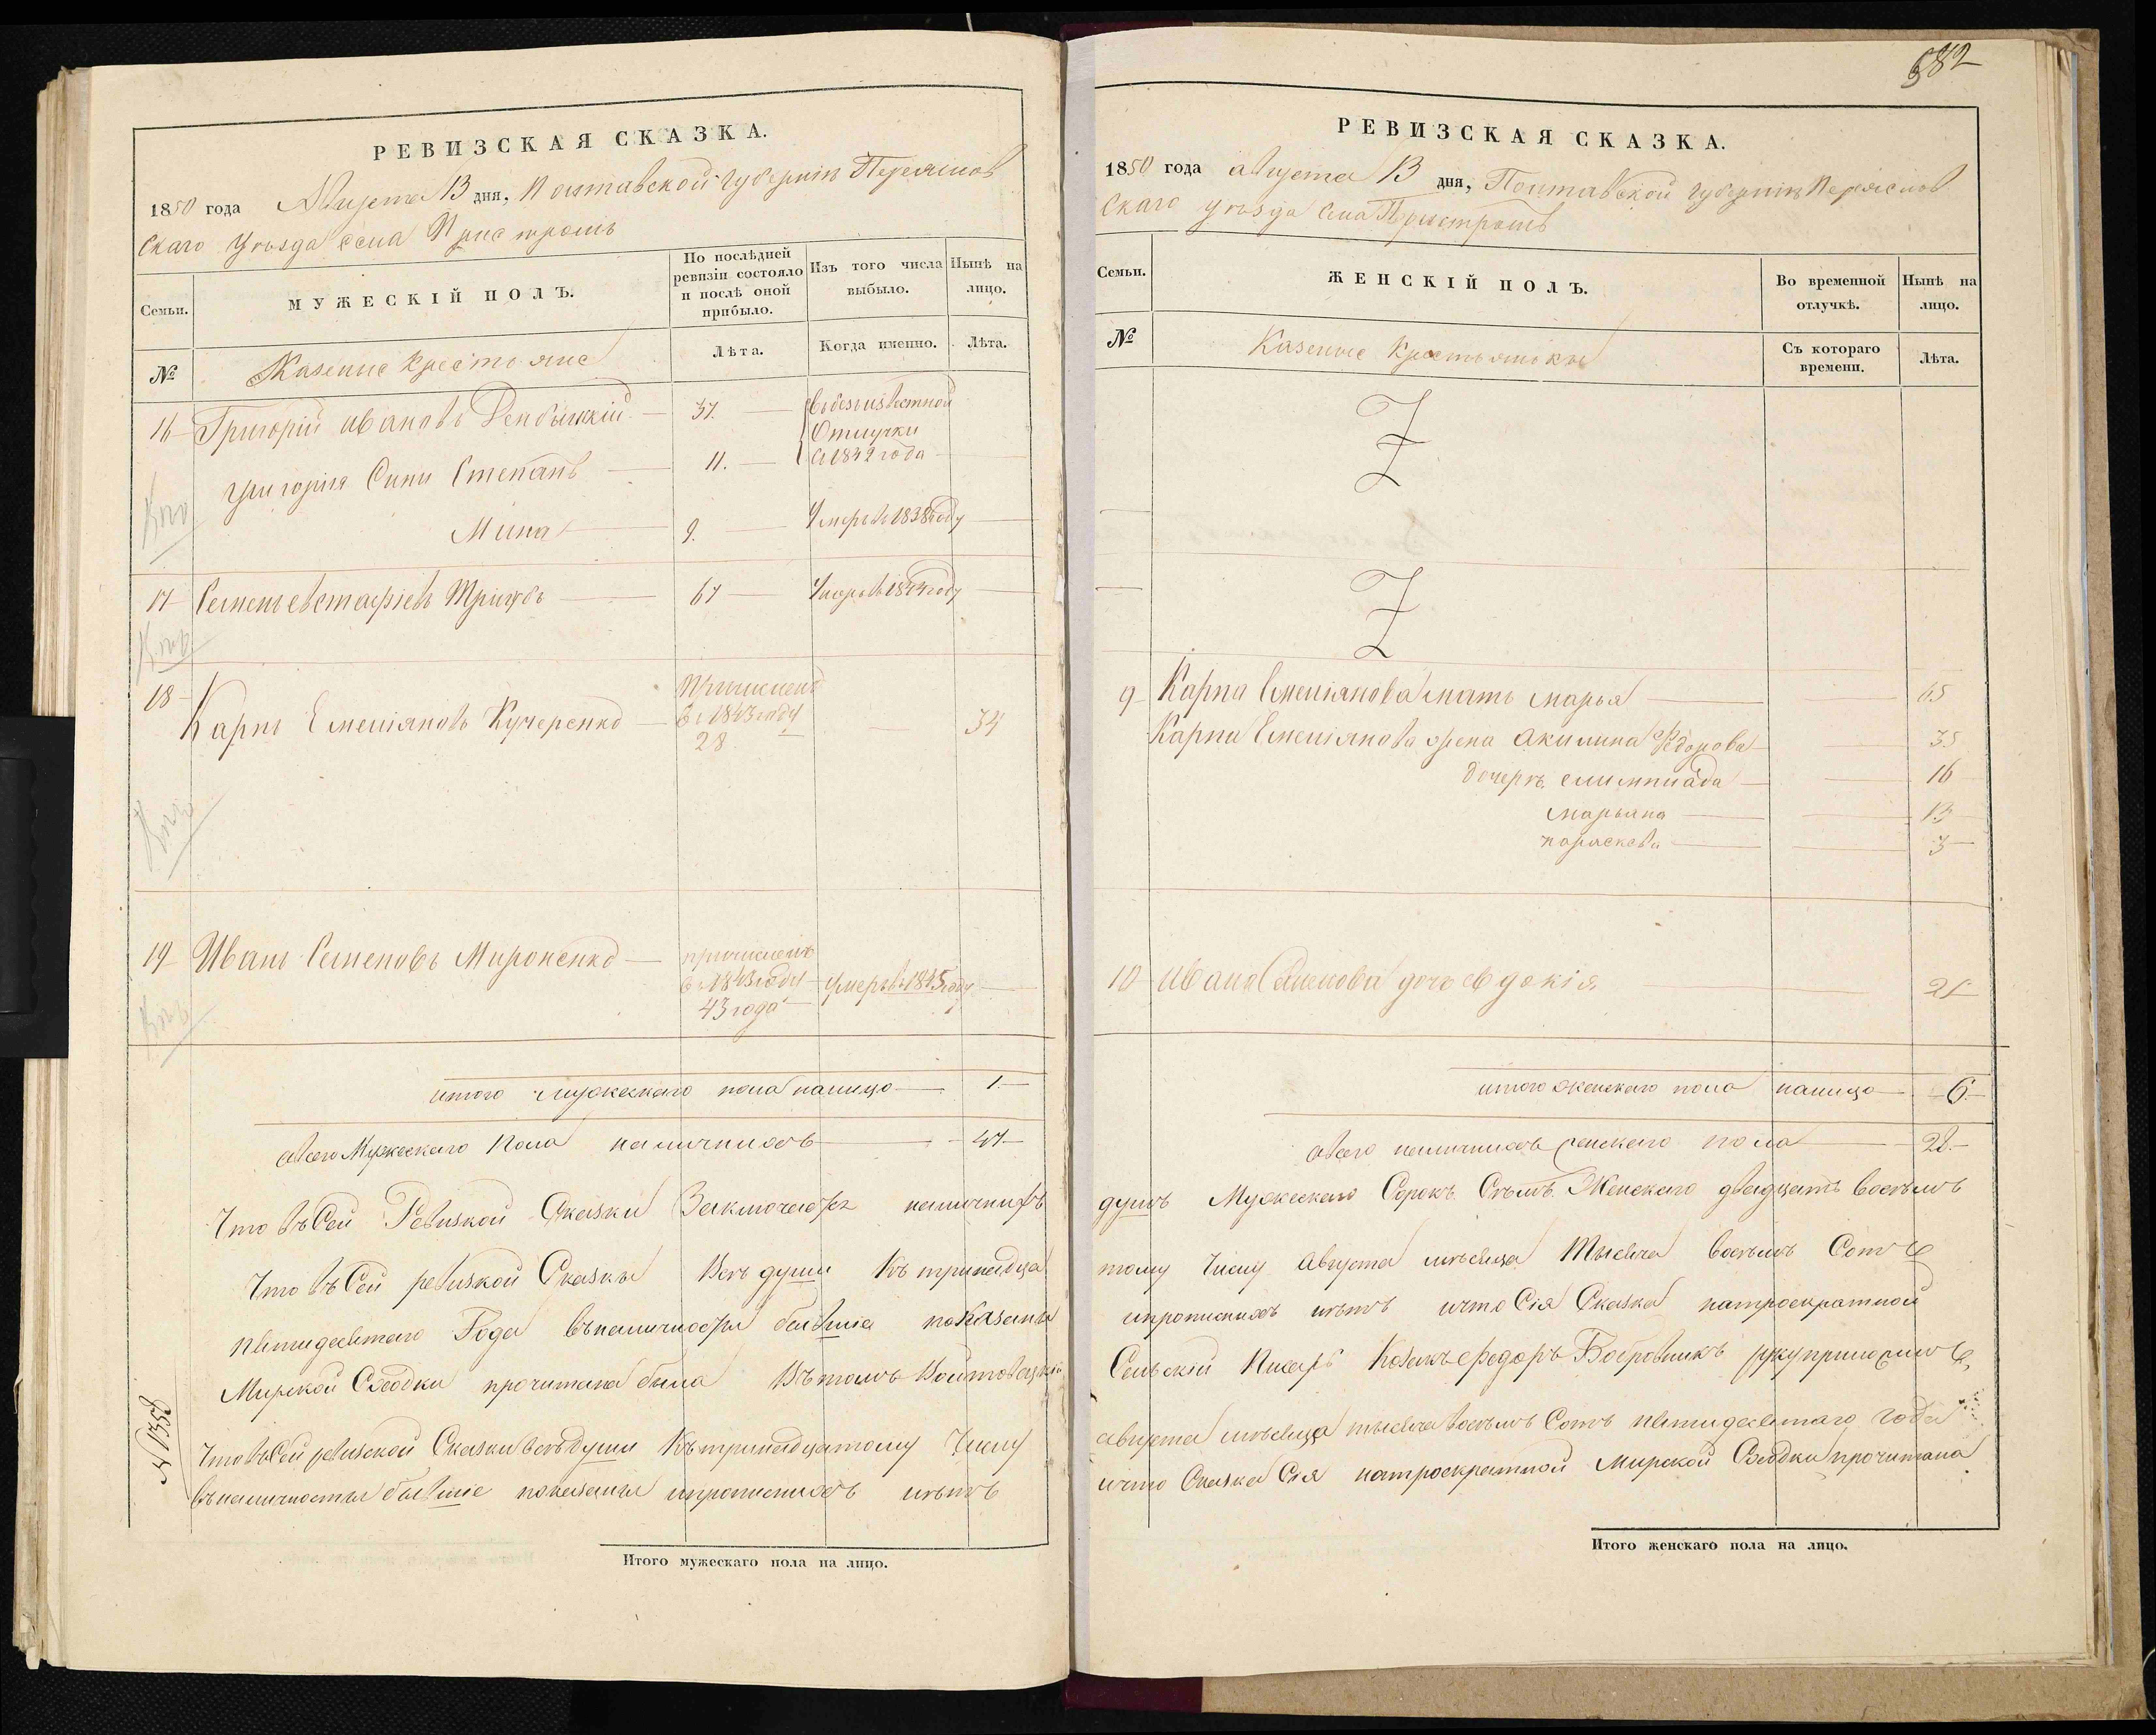 РЕВИЗСКАЯ СКАЗКА.
1850 года Августа 13 дня, Полтавской губернии Переяслов
скаго уѣзда села Пристромъ
Семьи. МУЖЕСКІЙ ПОЛЪ. По послѣдней ревизіи состояло и послѣ оной прибыло. Изъ того числа выбыло. Нынѣ на лицо.
№ Казение крестьяне Лѣта. Когда именно. Лѣта.
16 Григорій Ивановъ 37. въ безъизвестной
Отлучки
Григорія Сини Степанъ 11. съ 1842 года
Мина 9. Умеръ в 1838 году
17 Семенъ Евстафіевъ 67
18 Карпъ Емеліяновъ Кучеренко причисленъ
в 1843 году 34
28
19 Иванъ Семеновъ Мироненко причисленъ
в 1843 году умеръ в 1845 году
43 года
итого мужескаго пола налицо 1
всего Мужескаго пола наличнихъ 47
Что въ Сей Ревизкой Сказки Заключаются наличнихъ
Что въ Сей ревизкой Сказки Всѣ души Къ тринадца
пятидесятаго Года въ наличности бывшие показаны
Мирской Сходки прочитана была Въ томъ
Что въ Сей ревизской Сказки всѣ души Къ тринадцатому Числу
въ наличности бывшие показаны и прописнихъ нѣтъ
№ 1358
Итого мужескаго пола на лицо.
682
РЕВИЗСКАЯ СКАЗКА.
1850 года августа 13 дня, Полтавской губерніи Переяслов
скаго уѣзда села Пристромъ
Семьи. ЖЕНСКІЙ ПОЛЪ. Во временной отлучкѣ. Нынѣ на лицо.
№ Казение Крестьянки Съ котораго времени. Лѣта.
9 Карпа Емеліянова мать Марья 65
Карпа Емеліянова жена Акилина Федорова 35
дочерѣ 16
Марьяна 13
параскева 3
10 Ивана Семенова дочь Евдокія 21
итого женскаго пола налицо 6
всего наличнихъ женскаго пола 28
душъ Мужескаго Сорокъ Семъ Женскаго двадцать восемъ
тому Числу Августа мѣсяца Тысяча восемъ Сотъ
и прописнихъ нѣтъ и что Сія Сказка на троекратной
Сельскій Писарь Козакъ Федоръ Бобровникъ руку приложилъ
августа мѣсяца тысяча восемъ Сотъ пятидесятаго года
и что Сказка Сія на троекратной Мирской Сходки прочитана
Итого женскаго пола на лицо.